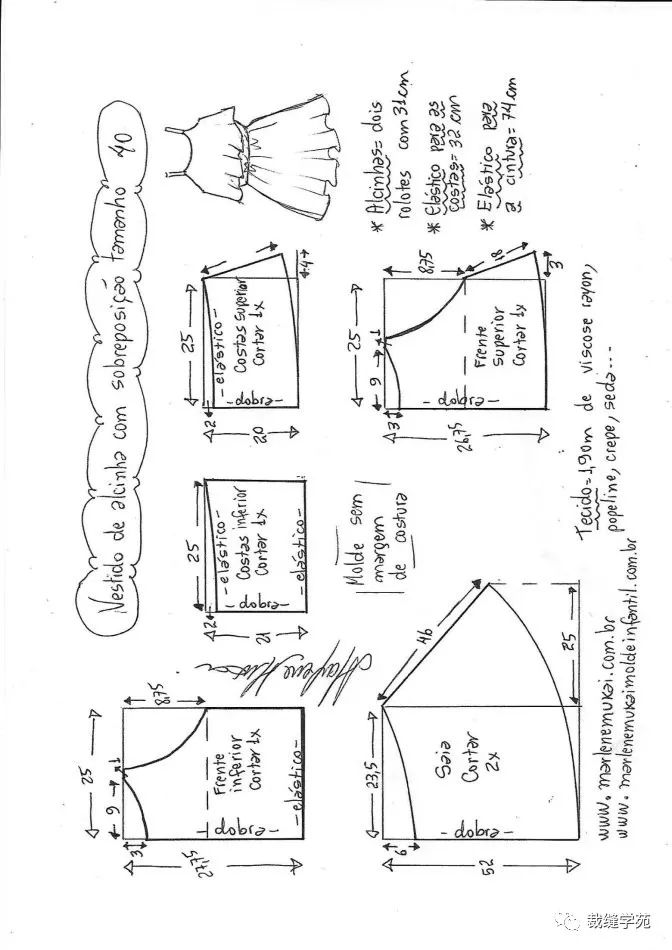 Vestido de alcinha com sobreposição tamanho 40
* Alcinhas= dois
rolotes com 31cm
* Elástico para as
costas= 32 cm
* Elástico para
a cintura= 74 cm
25
9
1
3
8,75
27,75
Frente
inferior
Cortar 1x
-dobra-
-elástico-
25
2
21
-elástico-
Costas inferior
Cortar 1x
-dobra-
elástico-
25
2
20
4
-elástico-
Costas superior
Cortar 1x
-dobra-
Molde sem
margem
de costura
25
9
1
3
8,75
18
3
26,75
Frente
superior
Cortar 1x
-dobra-
23,5
6
52
46
25
Saia
Cortar
2x
-dobra-
Tecido=1,90m de viscose rayon,
popeline, crepe, seda...
www.marlenemukai.com.br
www.marlenemukaimoldeinfantil.com.br
裁缝学苑